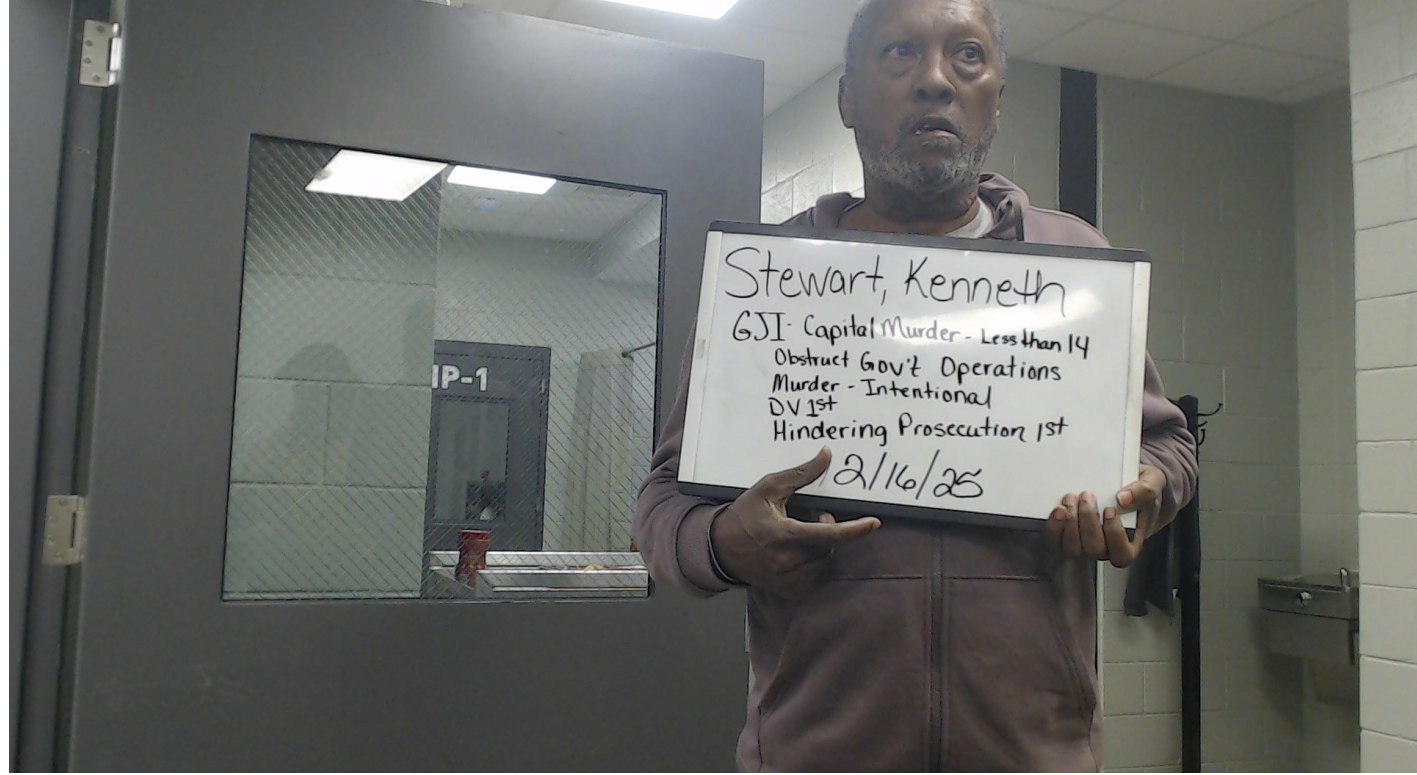 IP-1
Stewart, Kenneth
GJI- Capital Murder - Less than 14
Obstruct Gov't Operations
Murder - Intentional
DV 1st
Hindering Prosecution 1st
12/16/25